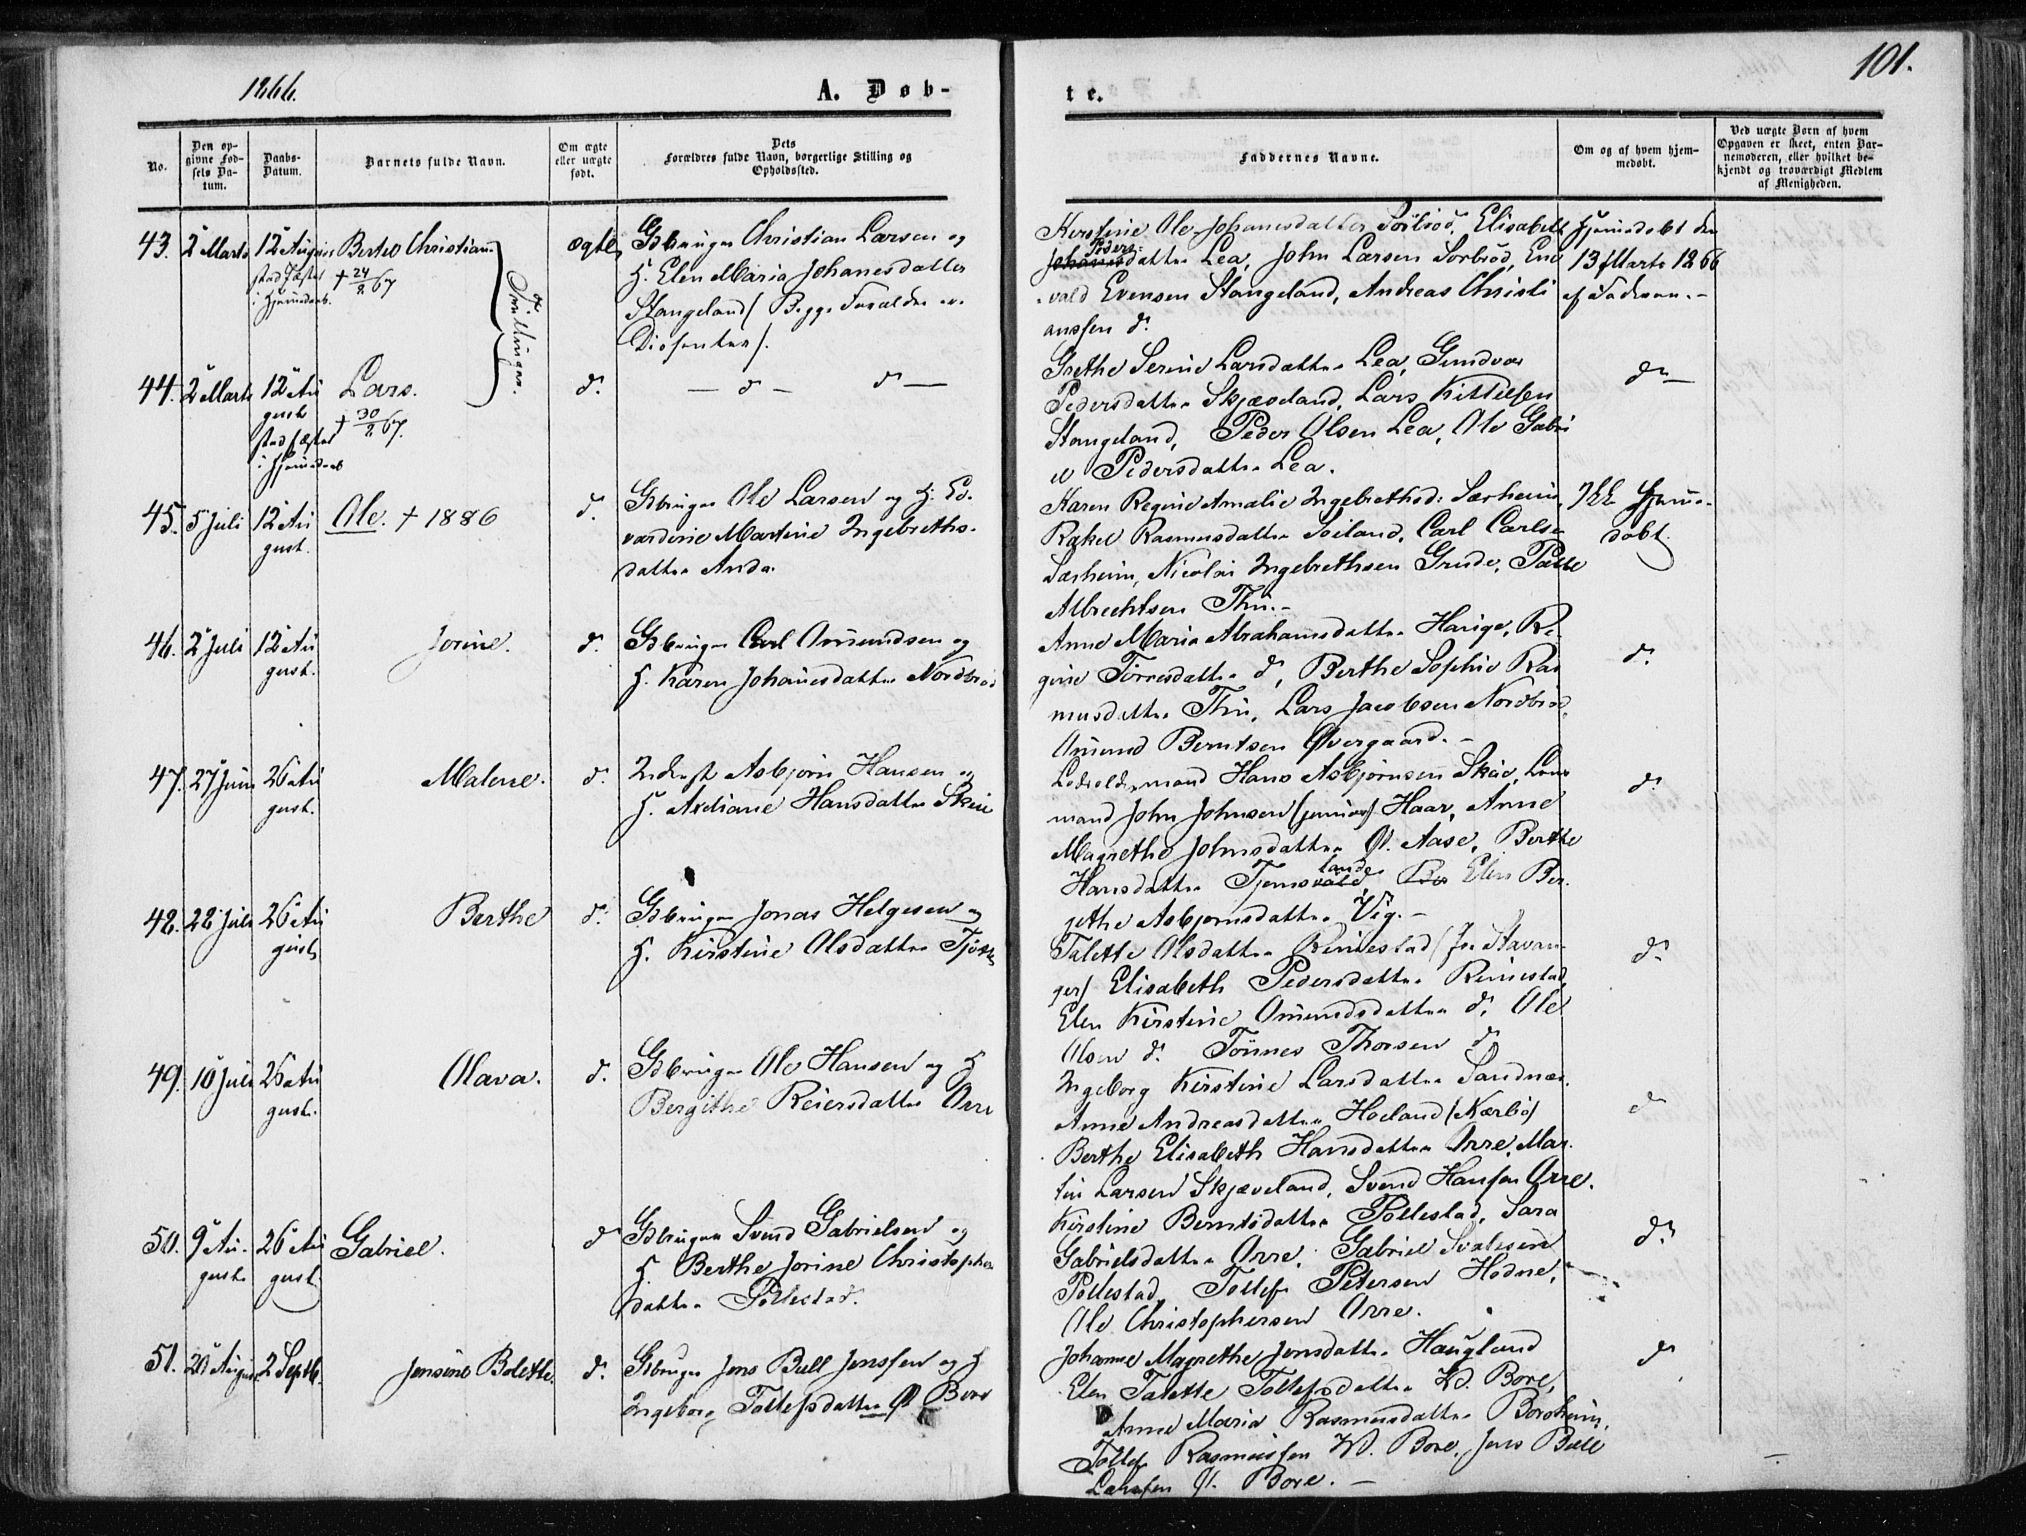 1866.
A. Døb-
te.
101.
No.
Den op-
givne Fød-
sels Da-
tum.
Daabs-
Datum.
Barnets fulde Navn.
Om ægte
eller uægte
født.
Dets
Forældres fulde Navn, borgerlige Stilling og
Opholdssted.
Faddernes Navne.
Om og af hvem hjem-
medøbt.
Ved uægte Børn af hvem
Opgaven er skeet, enten Bar-
nemoderen, eller hvilket be-
kjendt og troværdigt Medlem
af Menigheden.
43. 2 Marts 12 August Bertel Christian
stadfæstet + 24/2 67
i Hjemmedaab
Tvillinger.
ægte
Gbruger Christian Larsen og
H. Elen Maria Johanesdatter
Stangeland (Begge Forældre er
Disenter).
Kirstine Ole Johannesdatter Sørbrød, Elisabeth
Peders-
Johanesdatter Lea, John Larsen Sorbrød, End
vald Evensen Stangeland, Andreas Christi
anssen d.
Hjemmedøbt den
13 Marts 1866
af Faderen.-
44. 2 Marts 12 Au Lars.
gust + 30/2 67.
stadfæstet
i Hjemmedaab
d. — d — d —
Grethe Serine Larsdatter Lea, Gundvor
Pedersdatter Skjæveland, Lars Kittelsen
Stangeland, Peder Olsen Lea, Ole Gabri
el Pedersdatter Lea.
d —
45. 5 Juli 12 Au Ole. + 1886
gust.
d.
Gbruger Ole Larsen og H. Ed-
vardine Martine Ingebreths-
datter Anda.
Karen Regine Amalie Ingebrethsd: Særheim,
Rakel Rasmusdatter Soiland, Carl Carlsen
Særheim, Nicolai Ingebrethsen Grude, Paul
Albrechtsen Thu.-
Ikke Hjemme-
døbt.
46. 2 Juli 12 Au Jorine.
gust.
d.
Gbruger Carl Omundsen og
H. Karen Johanesdatter Nordbrød
Anne Maria Abrahamsdatter Hauge, Re-
gine Torresdatter d, Berthe Sophie Ras
musdatter Thu, Lars Jacobsen Nordbrød,
Omund Berntsen Øvergaard.-
d.
47. 27 Juni 26 Au Malene.
gust.
d.
Inderst Asbjørn Hansen og
H. Axeliane Hansdatter Skeie
Ledvoldermand Hans Asbjørnsen Skeie, Lens
mand John Johnsen (junior) Haar, Anne
Magrethe Johnsdatter Ø. Aase, Berthe
lands
Hansdatter Tjemsvold, Ber Elen Ber-
gethe Asbjornsdatter Vig.-
d.
48. 28 Juli 26 Au Berthe
gust
d.
Gbruger Jonas Helgesen og
H. Kirstine Olsdatter Tjøtta
Talette Olsdatter Reimestad (fra Stavan-
ger) Elisabeth Pedersdatter Reimestad,
Elen Kirstine Omundsdatter d, Ole
Olsen d. Tønnes Thorsen d
d.
49. 10 Juli 26 Au Olava.
gust.
d.
Gbruger Ole Hansen og H
Bergithe Reiersdatter Orre
Ingeborg Kirstine Larsdatter Sandnæs.
Anne Andreasdatter Høiland (Nærbø)
Berthe Elisabeth Hansdatter Orre, Mar-
tin Larsen Skjæveland, Svend Hansen Orre.
d
50. 9 Au- 26 Au Gabriel.
gust. gust.
d
Gbruger Svend Gabrielsen og
H. Berthe Jorine Christophers
datter Pollestad.
Kirstine Berntsdatter Pollestad, Sara
Gabrielsdatter Orre, Gabriel Svalesen
Pollestad, Tollef Petersen Hodne,
Ole Christophersen Orre.
d.
51. 20 August 2 Septb. Jensine Bolette.
d.
Gbruger Jens Bull Jenssen og H
Ingeborg Tollefsdatter Ø Bore
Johanne Magrethe Jonsdatter Haugland
Elen Talette Tollefsdatter N. Bore,
Anne Maria Rasmusdatter Boreheim,
Tollef Rasmussen N. Bore, Jens Bull
Larssen Ø. Bore.-
d